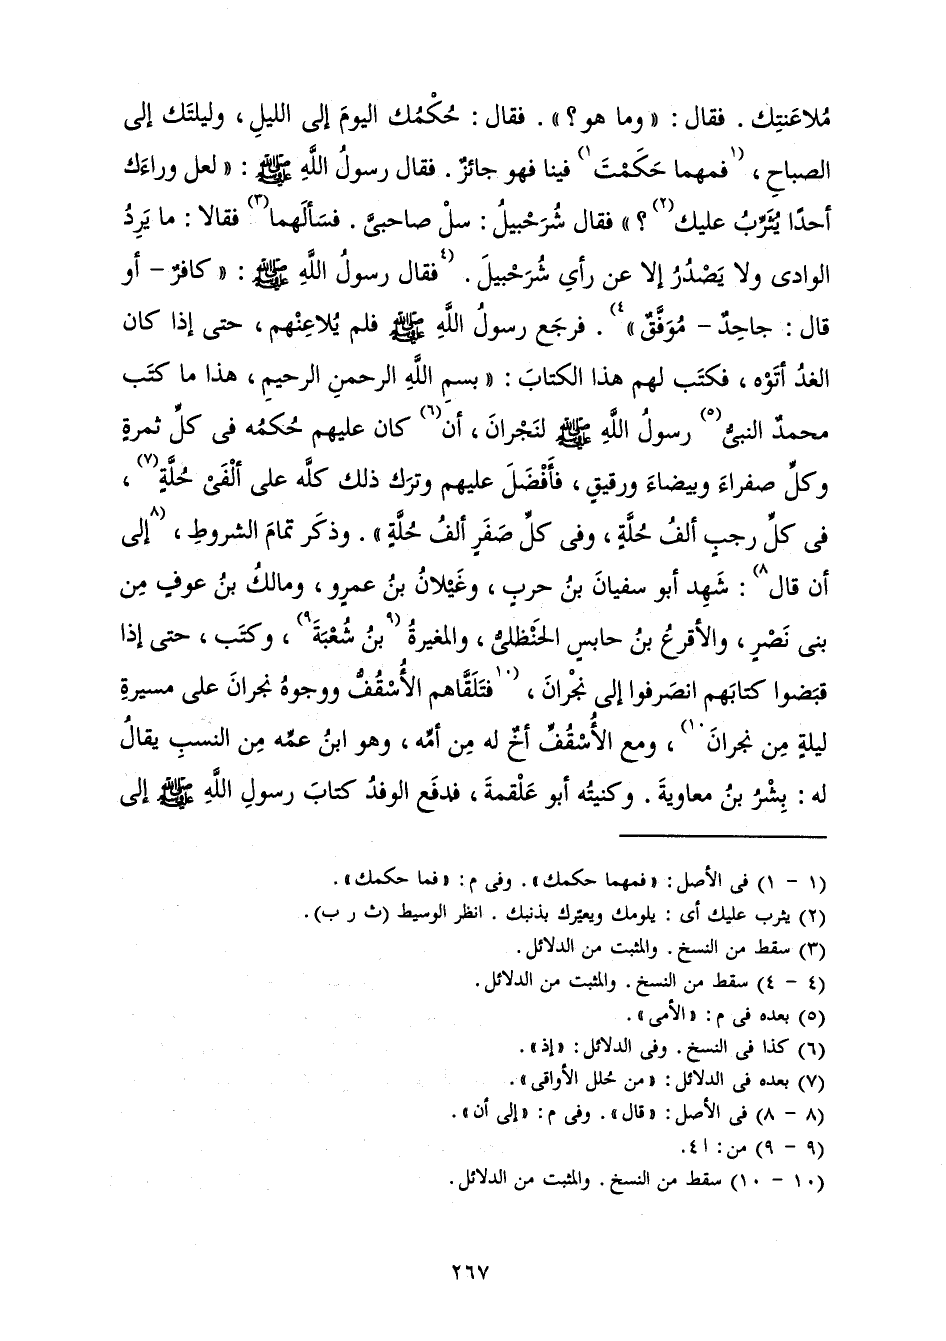 مُلاعَنتِك . فقال : « وما هو ؟ » . فقال : حُكْمُك اليومَ إلى الليلِ ، وليلتَك إلى
الصباحِ ، (١فمهما حَكَمْتَ١) فينا فهو جائزٌ . فقال رسولُ اللَّهِ ﷺ : « لعل وراءَك
أحدًا يُثَرِّبُ عليك(٢) ؟ » فقال شُرَحْبيلُ : سلْ صاحبىَّ . فسَألَهما(٣) فقالا : ما يَرِدُ
الوادى ولا يَصْدُرُ إلا عن رأىِ شُرَحْبيلَ . (٤فقال رسولُ اللَّهِ ﷺ : « كافرٌ – أو
قال : جاحِدٌ – مُوَفَّقٌ »٤) . فرجَع رسولُ اللَّهِ ﷺ فلم يُلاعِنْهم ، حتى إذا كان
الغدُ أتَوْه ، فكتَب لهم هذا الكتابَ : « بسمِ اللَّهِ الرحمنِ الرحيمِ ، هذا ما كتَب
محمدٌ النبىُّ(٥) رسولُ اللَّهِ ﷺ لنَجْرانَ ، أن(٦) كان عليهم حُكمُه فى كلِّ ثمرةٍ
وكلِّ صفراءَ وبيضاءَ ورقيقٍ ، فأَفْضَلَ عليهم وترَك ذلك كلَّه على ألْفَىْ حُلَّةٍ(٧) ،
فى كلِّ رجبٍ ألفُ حُلَّةٍ ، وفى كلِّ صَفَرٍ ألفُ حُلَّةٍ » . وذكَر تمامَ الشروطِ ، (٨إلى
أن قال٨) : شَهِد أبو سفيانَ بنُ حربٍ ، وغَيْلانُ بنُ عمرٍو ، ومالكُ بنُ عوفٍ مِن
بنى نَصْرٍ ، والأقرعُ بنُ حابسٍ الحَنْظلىُّ ، والمغيرةُ (٩بنُ شُعْبَةَ٩) ، وكتَب ، حتى إذا
قبَضوا كتابَهم انصَرفوا إلى نجْرانَ ، (١٠فتَلَقَّاهم الأُسْقُفُّ ووجوهُ نجرانَ على مسيرةِ
ليلةٍ مِن نجرانَ١٠) ، ومع الأُسْقُفِّ أخٌ له مِن أمِّه ، وهو ابنُ عمِّه مِن النسبِ يقالُ
له : بِشْرُ بنُ معاويةَ . وكنيتُه أبو عَلْقمةَ ، فدفَع الوفدُ كتابَ رسولِ اللَّهِ ﷺ إلى
(١ – ١) فى الأصل : « فمهما حكمك » . وفى م : « فما حكمك » .
(٢) يثرب عليك أى : يلومك ويعيّرك بذنبك . انظر الوسيط (ث ر ب) .
(٣) سقط من النسخ . والمثبت من الدلائل .
(٤ – ٤) سقط من النسخ . والمثبت من الدلائل .
(٥) بعده فى م : « الأمى » .
(٦) كذا فى النسخ . وفى الدلائل : « إذ » .
(٧) بعده فى الدلائل : « من حُلل الأواقى » .
(٨ – ٨) فى الأصل : « قال » . وفى م : « إلى أن » .
(٩ – ٩) من : ا ٤ .
(١٠ – ١٠) سقط من النسخ . والمثبت من الدلائل .
٢٦٧